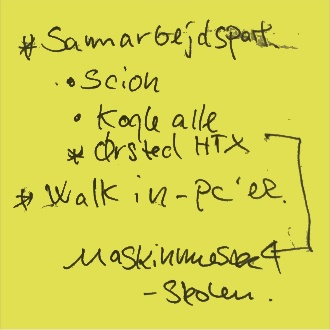 * Samarbejdspart
• Scion
• Kogle alle
* Ørsted HTX
* Walk in-pc'er.
Maskinmester
-skolen.